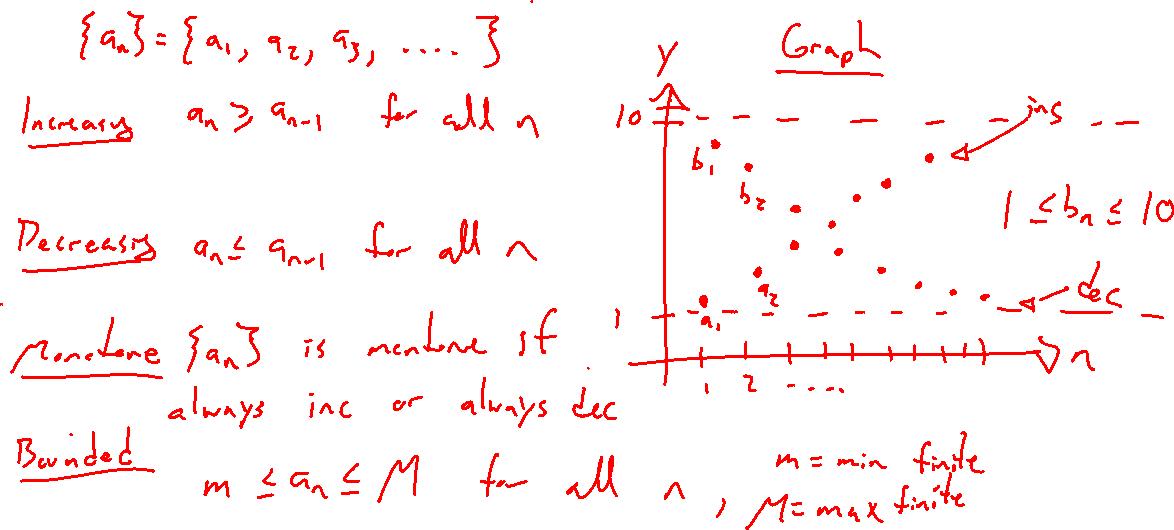 {aₙ} = {a₁, a₂, a₃, ....}
Increasing aₙ ≥ aₙ₋₁ for all n
Decreasing aₙ ≤ aₙ₋₁ for all n
Monotone {aₙ} is monotone if
always inc or always dec
Bounded
m ≤ aₙ ≤ M for all n,
m = min finite
M = max finite
Graph
y
10
inc
b₁
b₂
1 ≤ bₙ ≤ 10
a₂
dec
1
a₁
n
1 2 ....